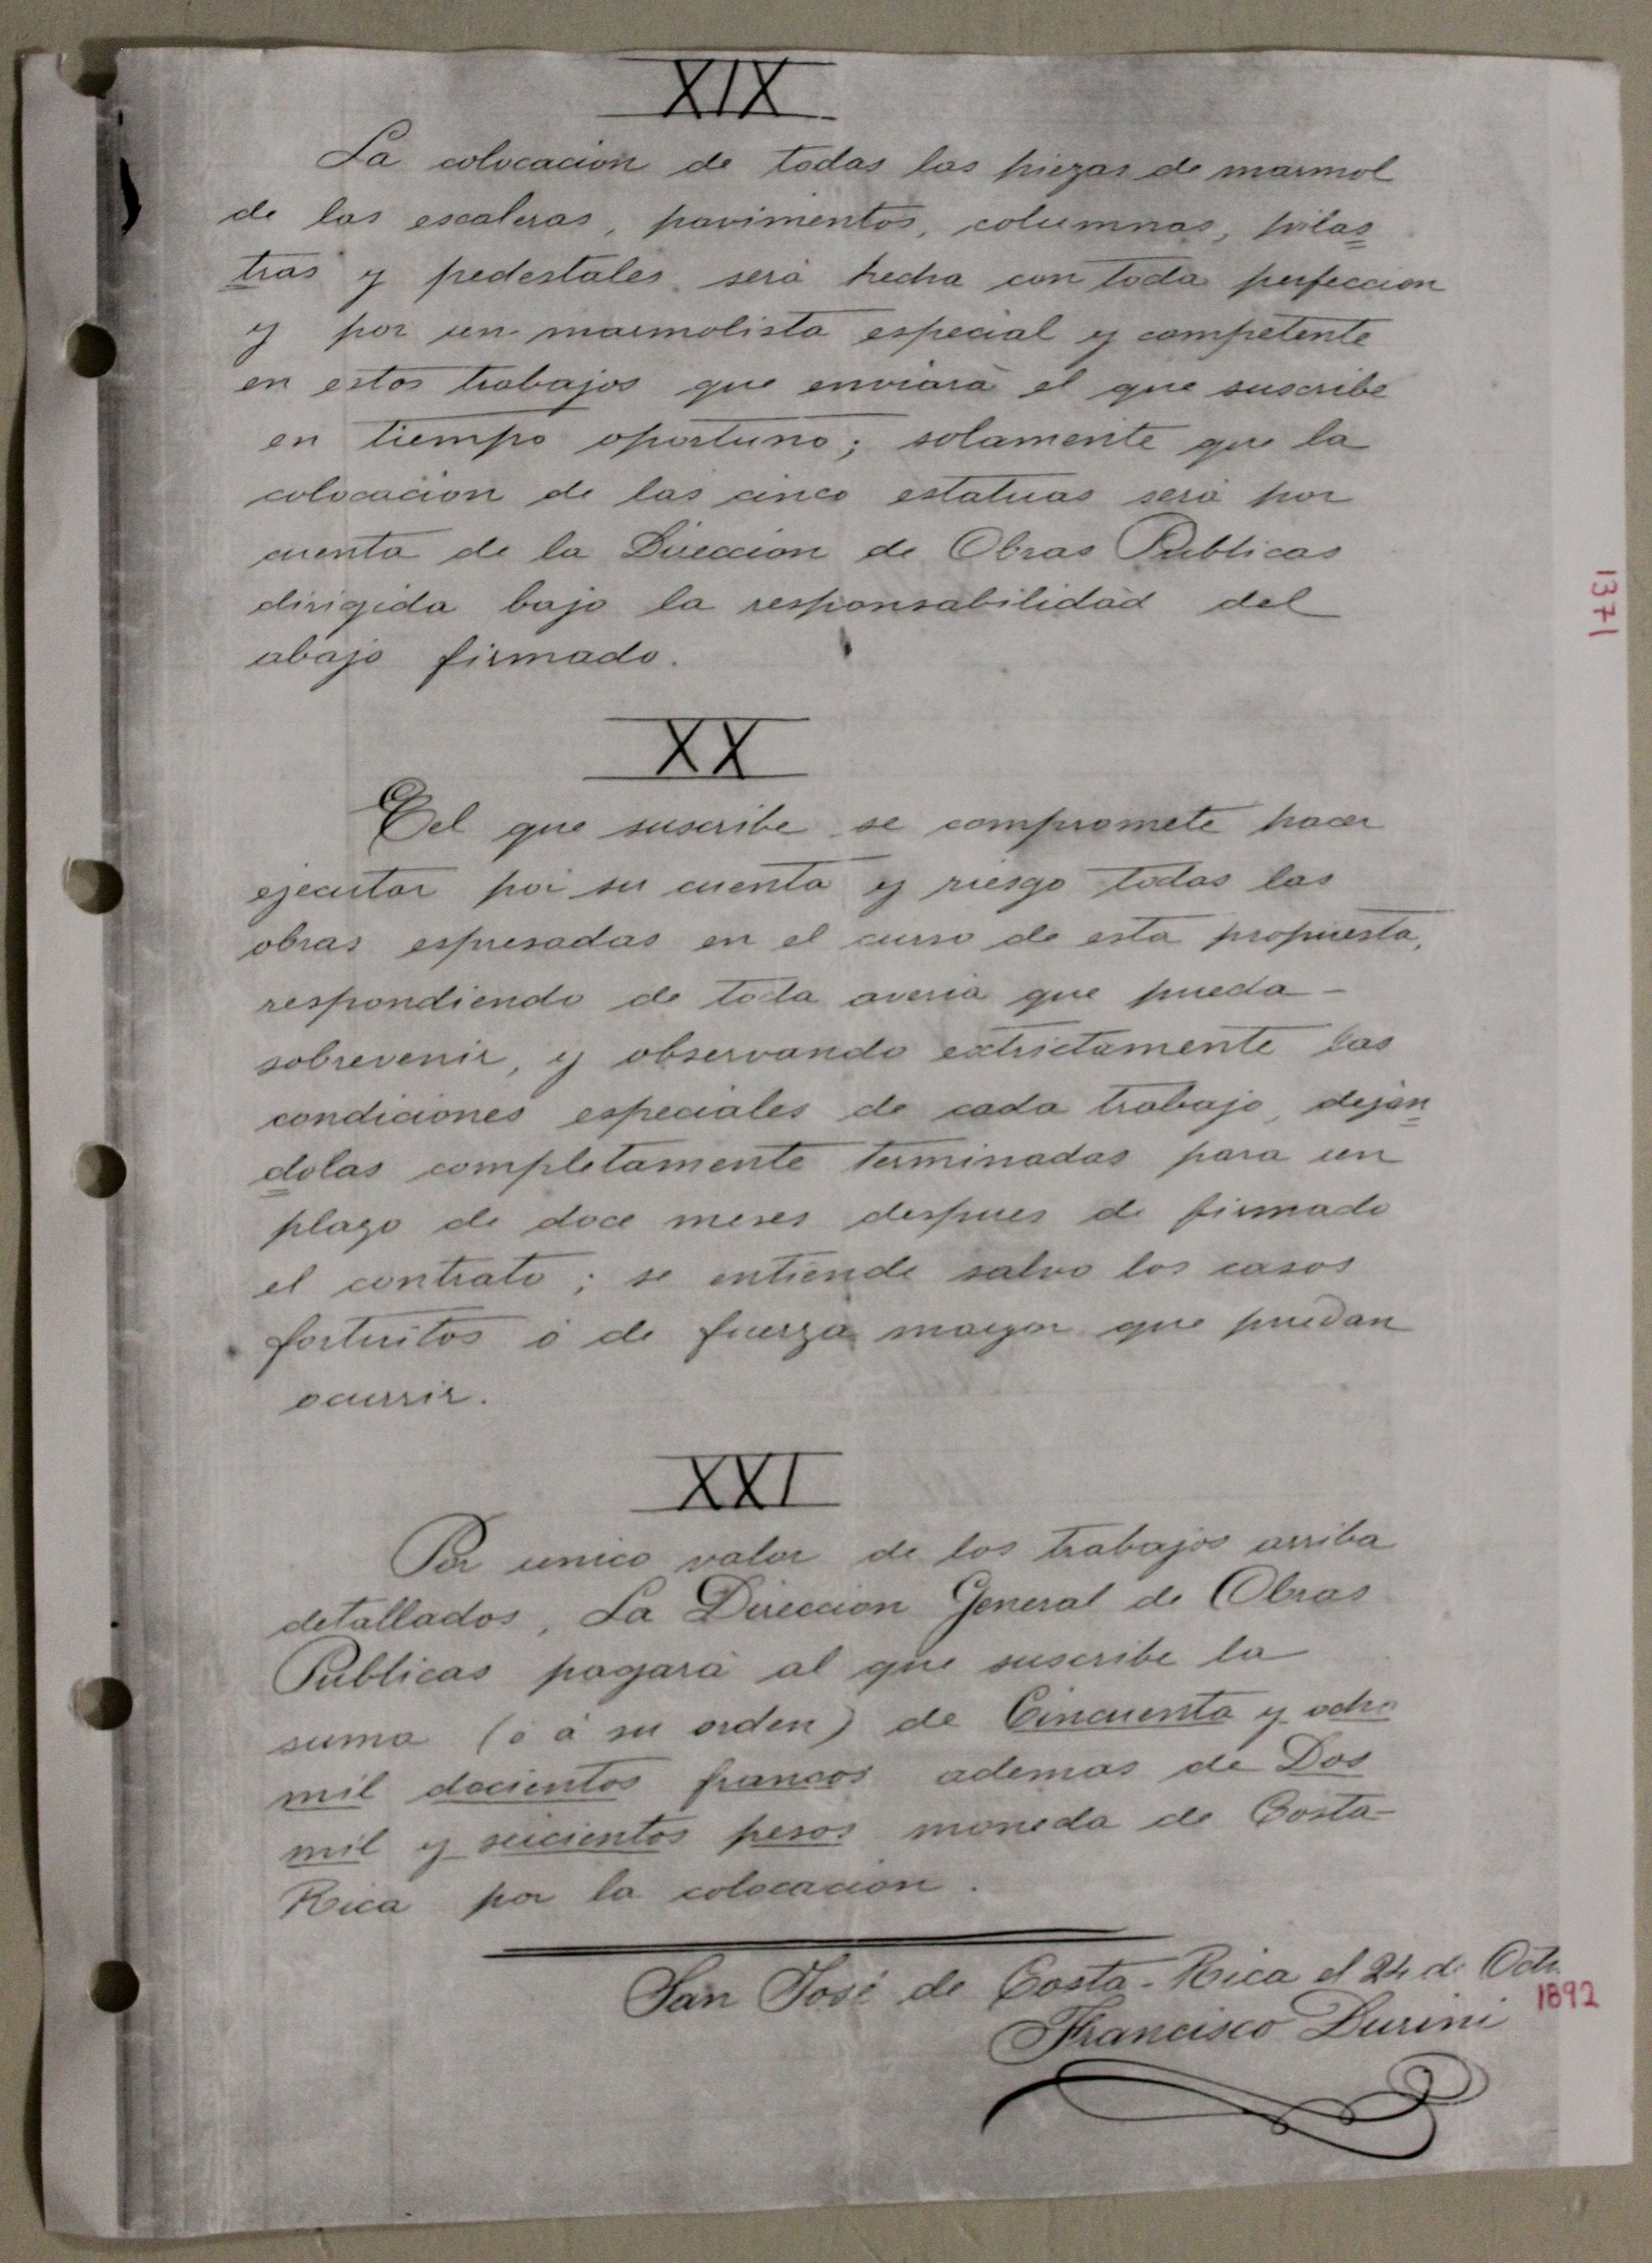 XIX
La colocacion de todas las piezas de marmol
de las escaleras, pavimentos, columnas, pilas=
tras y pedestales será hecha con toda perfeccion
y por un marmolista especial y competente
en estos trabajos que enviará el que suscribe
en tiempo oportuno; solamente que la
colocacion de las cinco estatuas será por
cuenta de la Direccion de Obras Publicas
dirigida bajo la responsabilidad del
abajo firmado.
XX
El que suscribe se compromete hacer
ejecutar por su cuenta y riesgo todas las
obras espresadas en el curso de esta propuesta,
respondiendo de toda averia que pueda -
sobrevenir, y observando extrictamente las
condiciones especiales de cada trabajo, dejan=
dolas completamente terminadas para un
plazo de doce meses despues de firmado
el contrato; se entiende salvo los casos
fortuitos ó de fuerza mayor que puedan
ocurrir.
XXI
Por unico valor de los trabajos arriba
detallados, La Direccion General de Obras
Publicas pagará al que suscribe la
suma (ó á su orden) de Cincuenta y ocho
mil docientos francos ademas de Dos
mil y seicientos pesos moneda de Costa-
Rica por la colocacion.
San José de Costa-Rica el 24 de Octe.
1892
Francisco Durini
1371